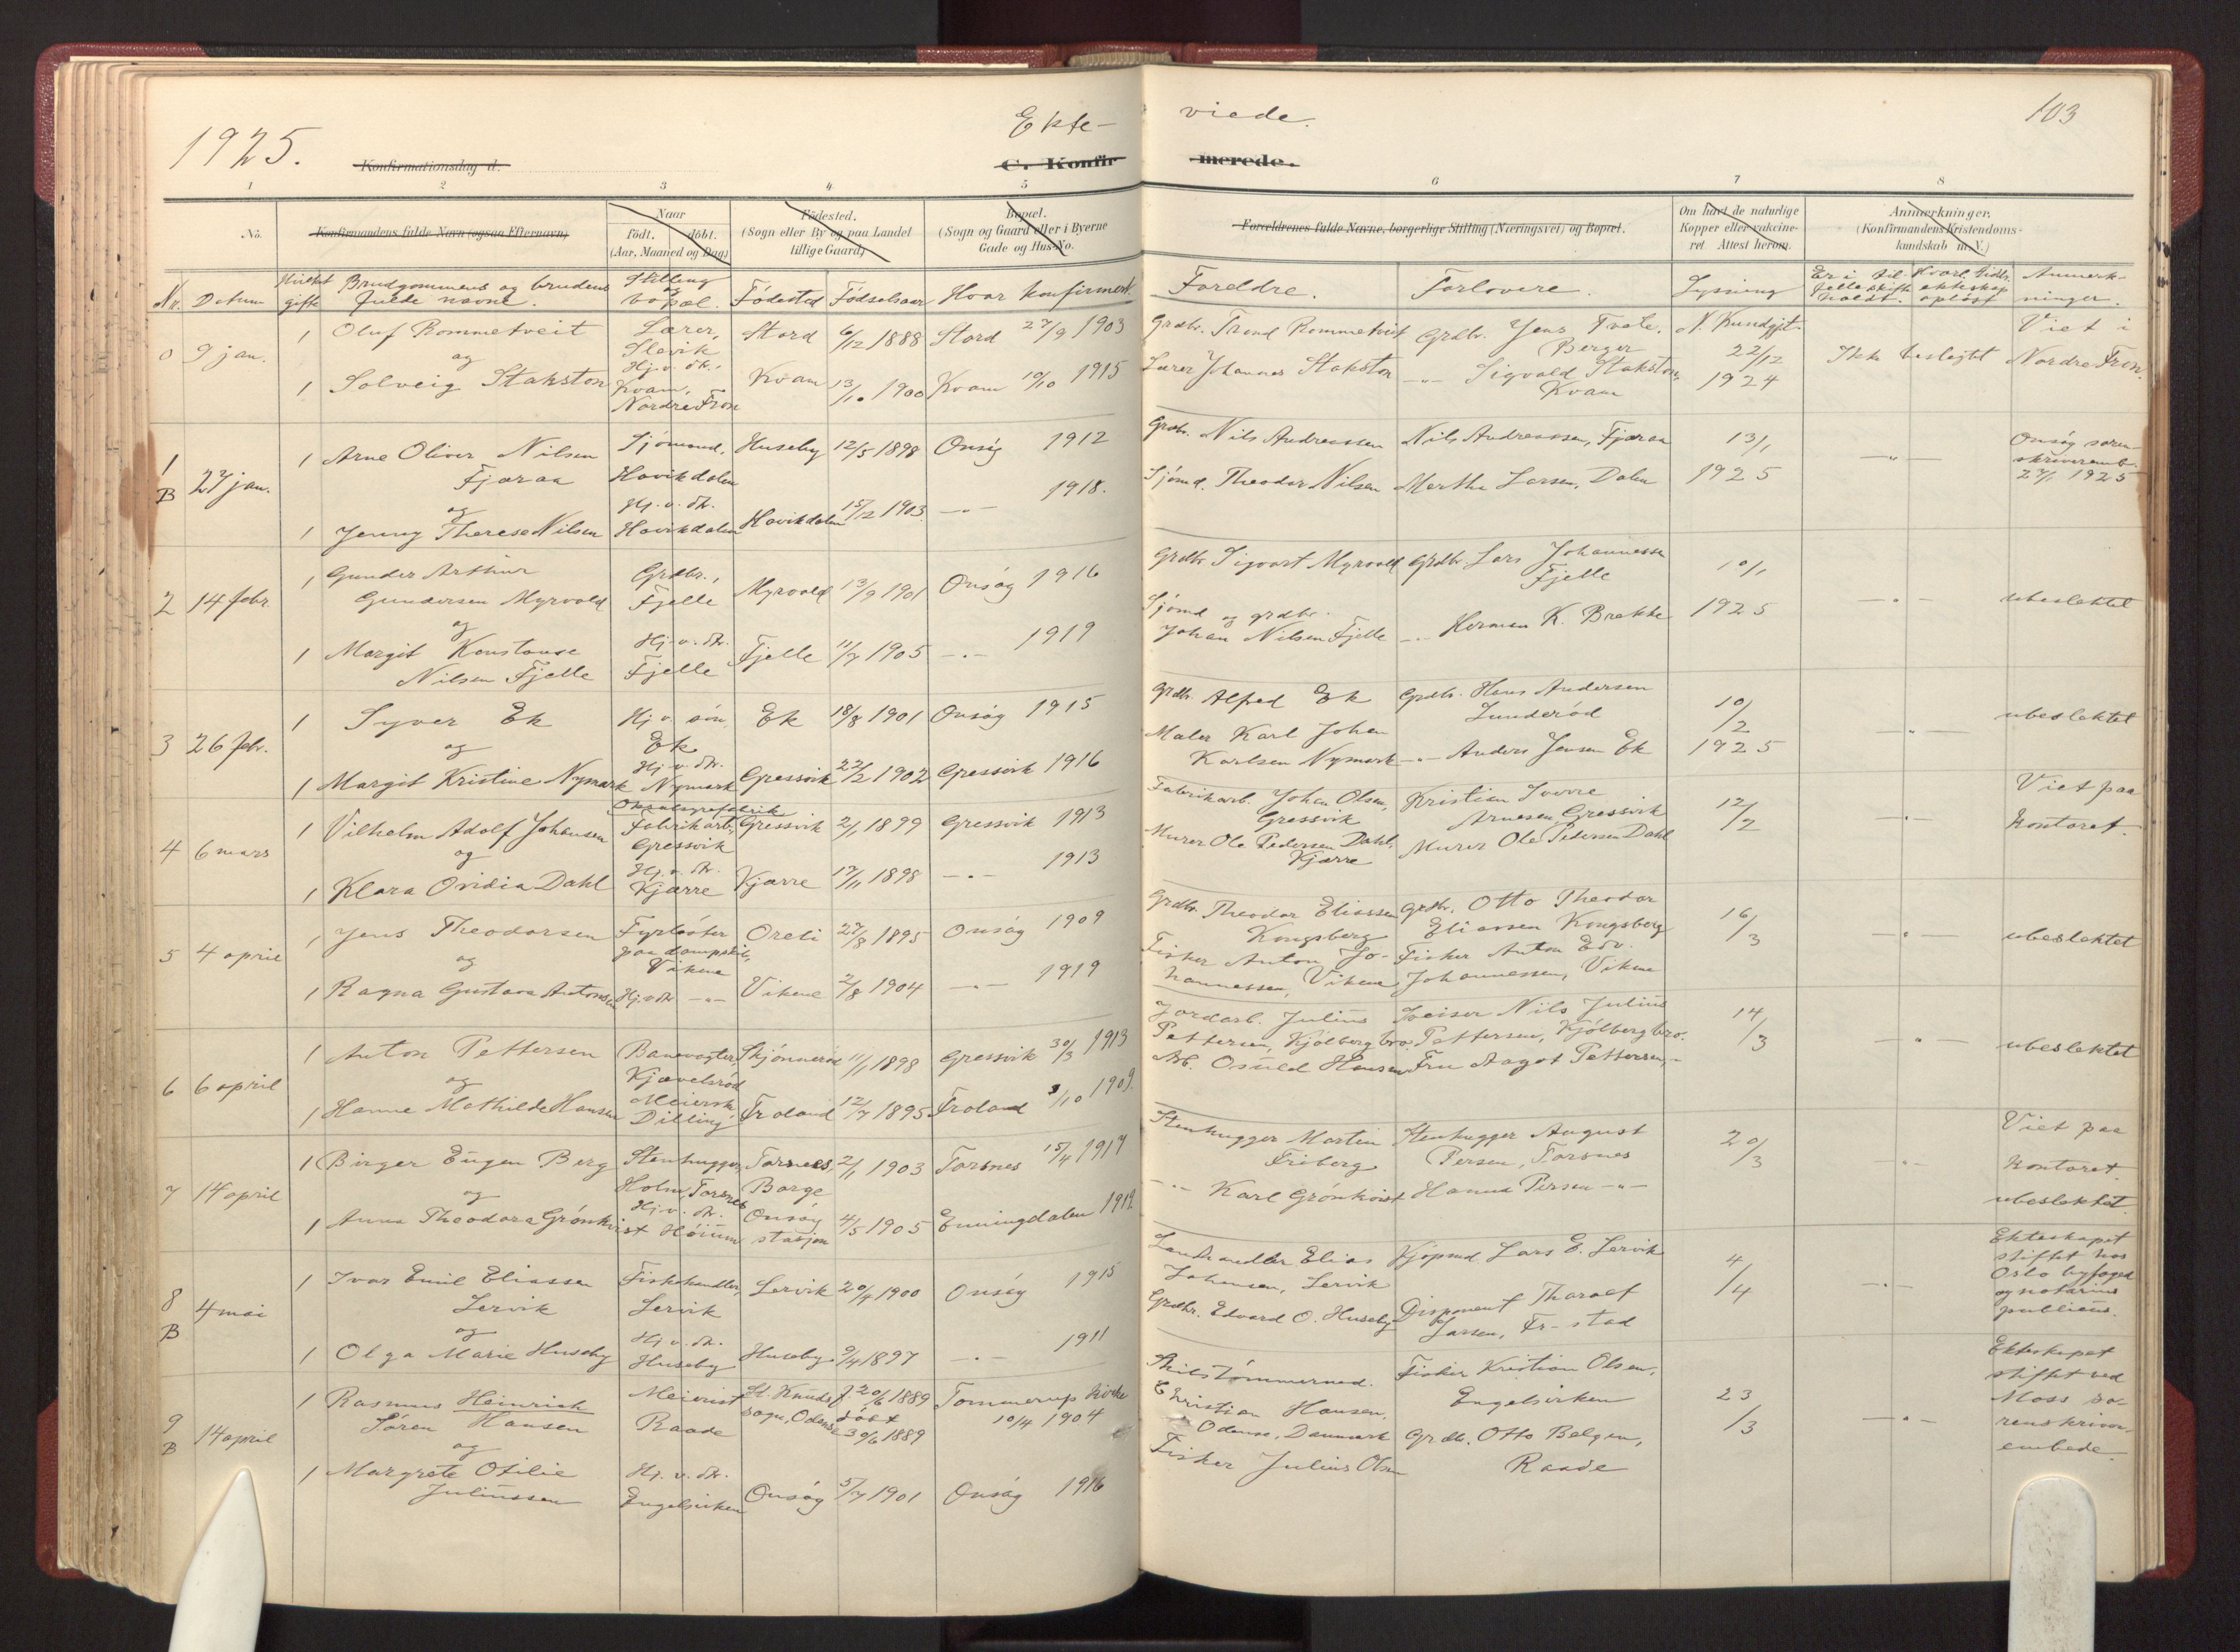 1925.
Ekte-
viede.
103
Konfirmationsdag d.
C. Konfir
merede.
1 2 3 4 5 6 7 8
No.
Konfirmandens fulde Navn (ogsaa Efternavn)
Naar
født. døbt.
(Aar, Maaned og Dag)
Födested.
(Sogn eller By og paa Landet
tillige Gaard)
Bopæl.
(Sogn og Gaard eller i Byerne
Gade og Hus-No.
Forældrenes fulde Navne, borgerlige Stilling (Næringsvei) og Bopæl.
Om havt de naturlige
Kopper eller vakcine-
ret Attest herom.
Anmærkninger.
(Konfirmandens Kristendoms-
kundskab m. V.)
Nr. Datum
Hvilket
gifte
Brudgommens og brudens
fulde navne.
Stilling
og
bopæl.
Födested
Födselsaar
Hvor konfirmert
Foreldre.
Forlovere.
Lysning
Anmerk-
ninger.
0 9 jan.
1 Oluf Rommetveit
og
1 Solveig Stakston
Lærer,
Slevik
Hj. v. dtr.,
Kvam,
Nordre Fron
Stord 6/12 1888 Stord 27/9 1903
Kvam 13/10 1900 Kvam 10/10 1915
Grdbr. Trond Rommetveit
Lærer Johannes Stakston
Grdbr. Jens Tvete,
Berger
-"- Sigvald Stakston,
Kvam
N. Kundgjt.
22/12
1924
Ikke beslegtet
Viet i
Nordre Fron.
1
B
27 jan.
1 Arne Oliver Nilsen
Fjæraa
og
1 Jenny Therese Nilsen
Sjömand,
Havikdalen
Hj. v. dtr.
Havikdalen
Huseby 12/5 1898 Onsöy 1912
Havikdalen 15/12 1903 -"- 1918.
Grdbr. Nils Andreassen
Sjömd. Theodor Nilsen
Nils Andreassen, Fjæraa
Marthe Larsen, Dalen
13/1
1925
-"-
Onsöy soren-
skriveremb.
27/1 1925
2 14 febr.
1 Gunder Arthur
Gundersen Myrvold
og
1 Margit Konstanse
Nilsen Fjelle
Grdbr.,
Fjelle
Hj. v. dtr.
Fjelle
Myrvold 13/9 1901 Onsöy 1916
Fjelle 11/7 1905 -"- 1919
Grdbr. Sigvart Myrvold
Sjömd. og grdbr.
Johan Nilsen Fjelle
Grdbr. Lars Johannessen
Fjelle
-"- Herman K. Brekke
10/1
1925
-"-
ubeslektet
3 26 febr.
1 Syver Ek
og
1 Margit Kristine Nymark
Hj. v. sön
Ek
Hj. v. dtr.
Nymark
Ek 18/8 1901 Onsöy 1915
Gressvik 22/2 1902 Gressvik 1916
Grdbr. Alfred Ek
Maler Karl Johan
Karlsen Nymark
Grdbr. Hans Andersen
Lunderöd
-"- Anders Jensen Ek
10/2
1925
"
ubeslektet
4 6 mars
1 Vilhelm Adolf Johansen
og
1 Klara Ovidia Dahl
Fabrikarb.,
Gressvik
Hj. v. dtr.
Kjærre
Gressvik 2/1 1899 Gressvik 1913
Kjærre 17/11 1898 -"- 1913
Fabrikarb. Johan Olsen,
Gressvik
Murer Ole Pedersen Dahl,
Kjærre
Kristian Sverre
Arnesen, Gressvik
Murer Ole Pedersen Dahl
12/2
-"-
Viet paa
kontoret.
5 4 april
1 Jens Theodorsen
og
1 Ragna Gustava Antonsen
Fyrböter
paa dampskib,
Vikene
Hj. v. dtr. -"-
Oreli 27/8 1895 Onsöy 1909
Vikene 2/8 1904 -"- 1919
Grdbr. Theodor Eliassen
Kongsberg
Fisker Anton Jo-
hannessen, Vikene
Grdbr. Otto Theodor
Eliassen Kongsberg
Fisker Anton Edv.
Johannessen, Vikene
16/3
-"-
ubeslektet
6 6 april
1 Anton Pettersen
og
1 Hanne Mathilde Hansen
Banevogter,
Kjævelsröd
Meierske
Dilling
Skjönneröd 11/1 1898 Gressvik 30/3 1913
Froland 12/7 1895 Froland 3/10 1909.
Jordarb. Julius
Pettersen, Kjölbergbro.
Osuld Hansen
Sveiser Nils Julius
Pettersen, Kjölbergbro.
Fru Aagot Pettersen, -"-
14/3
-"-
ubeslektet
7 14 april
1 Birger Eugen Berg
og
1 Anna Theodora Grönkvist
Stenhugger,
Holm, Torsnes
Hj. v. dtr.
Höium
Torsnes, 2/1 1903 Torsnes 15/4 1917
Borge
Onsöy
stasjon
4/5 1905 Enningdalen 1919.
Stenhugger Martin
Friberg
-"- Karl Grönkvist
Stenhugger August
Persen, Torsnes
Hanna Persen -"-
20/3
-"-
Viet paa
kontoret.
ubeslektet.
8
B
4 mai
1 Ivar Emil Eliassen
Lervik
og
1 Olga Marie Huseby
Fiskehandler,
Lervik
Hj. v. dtr.
Huseby
Lervik 20/4 1900 Onsöy 1915
Huseby 9/4 1897 -"- 1911
Landhandler Elias
Johansen, Lervik
Grdbr. Edvard O. Huseby
Kjöpmd Lars E. Lervik
Disponent Tharalf
Larsen, Fr-stad
4/4
-"-
Ekteskapet
stiftet hos
Oslo byfoged
og notarius
publicus.
9
B
14 april
1 Rasmus Heinrich
Sören Hansen
og
1 Margrete Otilie
Juliussen
Meierist
Raade
Hj. v. dtr.
Engelsviken
St. Knuds
sogn, Odense
f. 20/6 1889
döbt
30/6 1889
Tommerup kirke
10/4 1904
Onsöy 5/7 1901 Onsöy 1916
Christian Hansen,
Odense, Danmark
Fisker Julius Olsen
Fisker Kristian Olsen,
Engelsviken
Grdbr. Otto Belgen,
Raade
23/3
-"-
Ekteskapet
stiftet ved
Moss so-
renskriver-
embede.